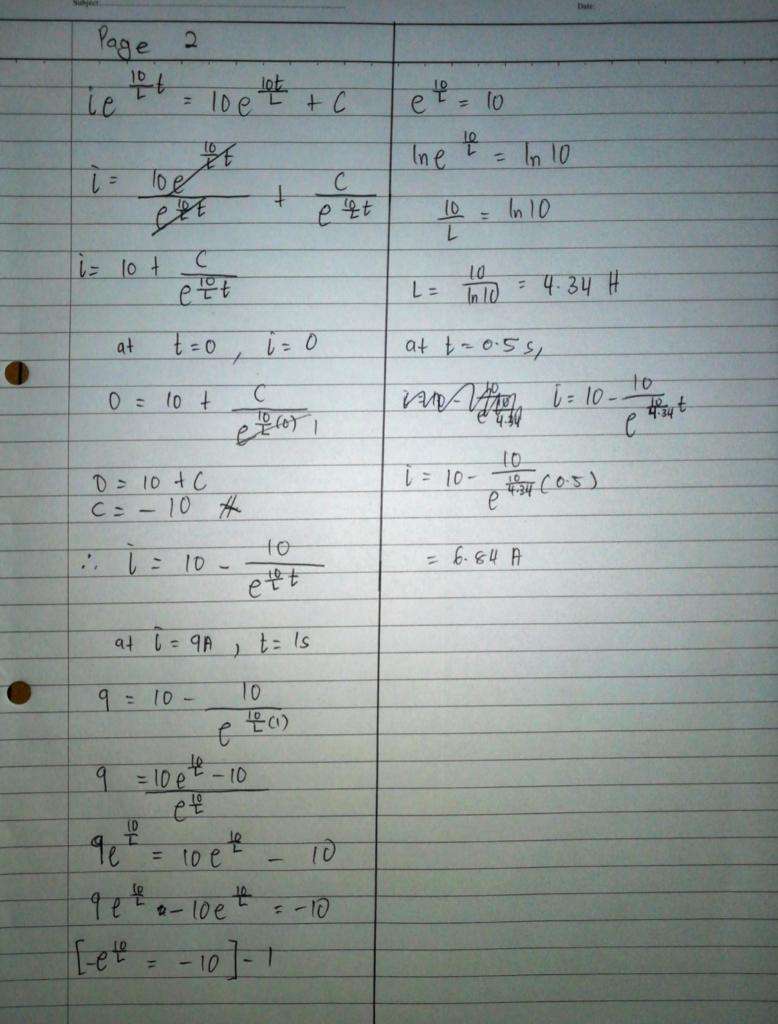 Subject:
Date:
Page 2
ie^(10/L t) = 10e^(10t/L) + C
i = 10e^(10/L t) / e^(10/L t) + C / e^(10/L t)
i = 10 + C / e^(10/L t)
at t=0 , i = 0
0 = 10 + C / e^(10/L (0)) 1
0 = 10 + C
C = - 10 #
∴ i = 10 - 10 / e^(10/L t)
at i = 9A , t = 1s
9 = 10 - 10 / e^(10/L (1))
9 = 10e^(10/L) - 10 / e^(10/L)
9e^(10/L) = 10e^(10/L) - 10
9e^(10/L) - 10e^(10/L) = -10
[-e^(10/L) = -10] - 1
e^(10/L) = 10
ln e^(10/L) = ln 10
10/L = ln 10
L = 10 / ln 10 = 4.34 H
at t = 0.5 s,
i = 10 - 10 / e^(10/4.34 t)
i = 10 - 10 / e^(10/4.34 (0.5))
= 6.84 A